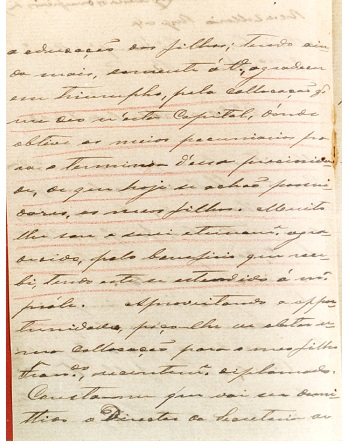 a educação dos filhos; tendo ain-
da mais, somente á V., agradecer
em triumpho, pela collocação q'
me deo n'esta Capital, d'onde
obtive os meios pecuniarios pa-
ra o termino d'essa
de que hoje se achão possui-
dores, os meus filhos. Muito
lhe sou e serei eternamte agra-
decido, pelo beneficio que rece-
bi, tendo este se estendido á mª
prole. Aproveitando a oppor-
tunidade, peço-lhe de obter u-
ma collocação para o meu filho
Franco, recentemte diplomado.
Consta-me que vai ser demit-
tido o Director da Secretaria do